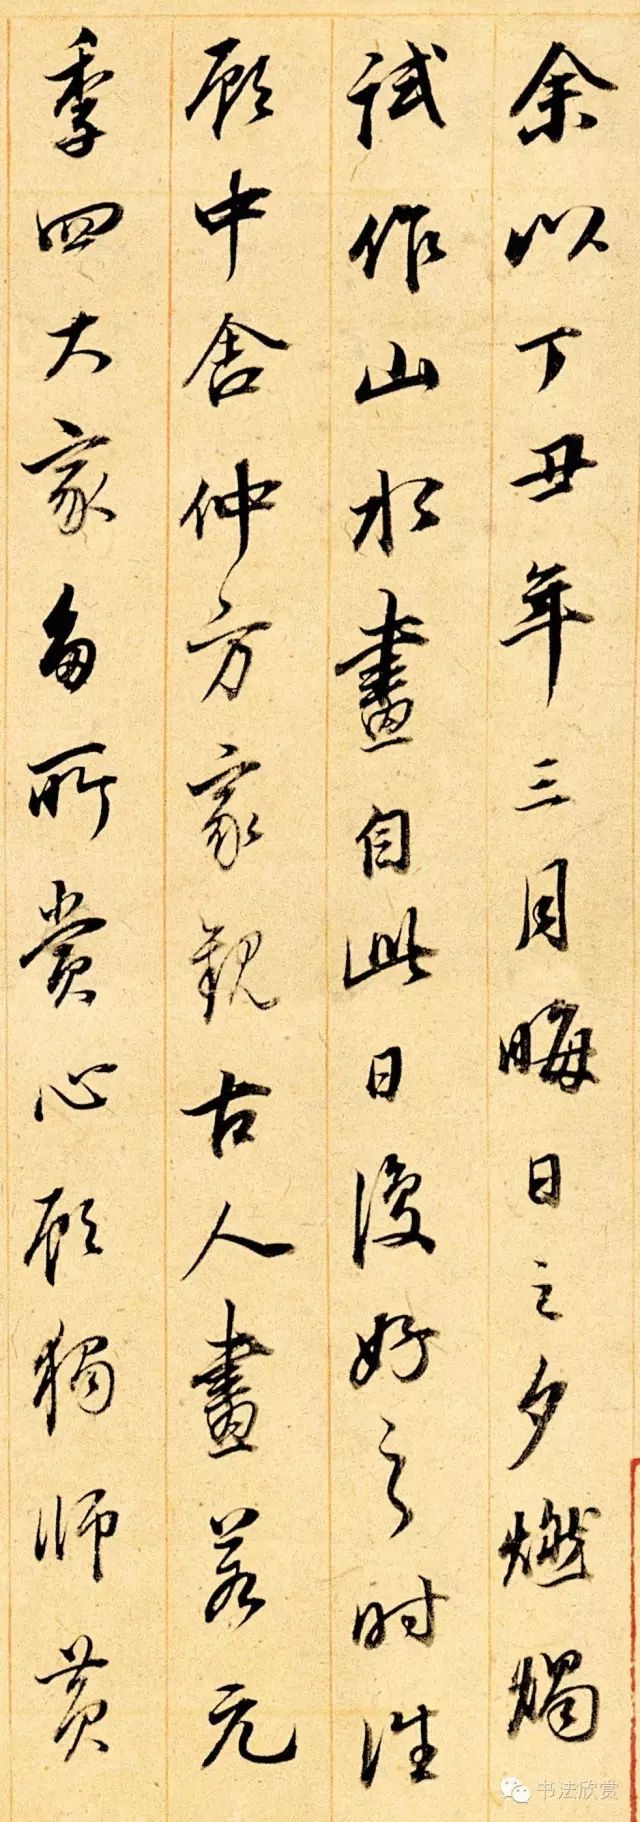 余以丁丑年三月晦日之夕燃燭
试作山水畫自此日復好之时往
顾中舍仲方家观古人畫若元
季四大家多所赏心顾獨师黄
书法欣赏